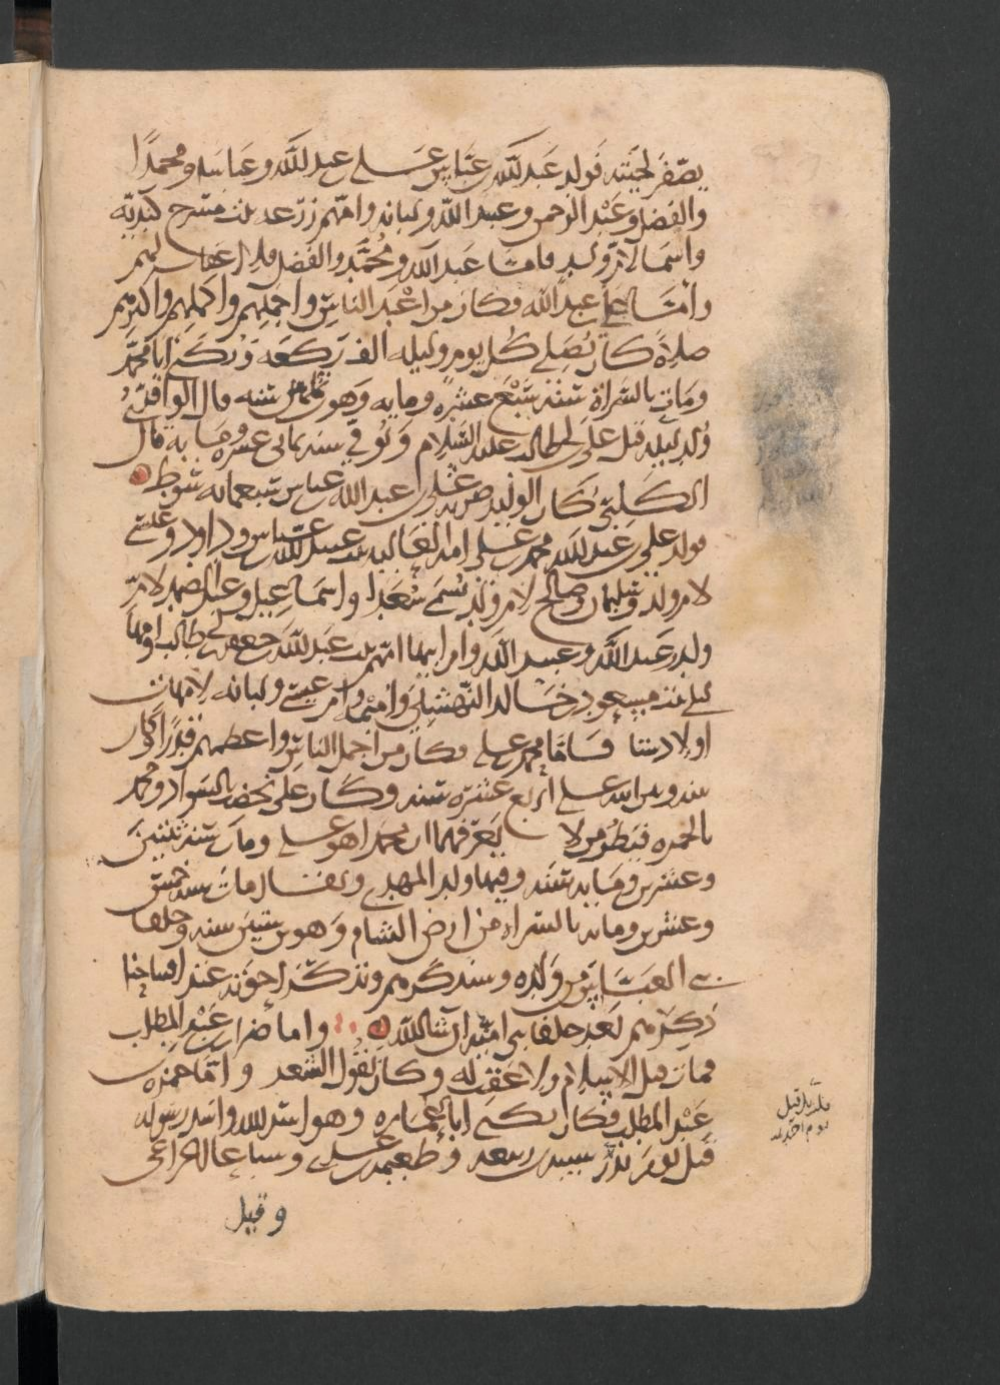 يصفر لحيته فولد عبد الله بن عباس علي بن عبد الله وعباسا ومحمدا
والفضل وعبد الرحمن وعبيد الله ولبابة وامهم زرعة بنت مشرح كندية
واسما لام ولد فاما عبيد الله ومحمد والفضل فلا اعقاب لهم
واما علي بن عبد الله فكان من اعبد الناس واجملهم واكملهم واكثرهم
صلاة كان يصلي كل يوم وليله الف ركعه وكان يكنى ابا محمد
ومات بالسراة سنة سبع عشرة ومايه وهو ابن ثمانين سنه قال الواقدي
ولد ليلة قتل علي بن ابي طالب عليه السلام وتوفي سنة ثماني عشرة وماية قال
الكلبي كان الوليد ضرب علي بن عبد الله بن عباس سبعمائة سوط
فولد علي بن عبد الله محمد بن علي امه العاليه بنت عبيد الله بن عباس وداود وعيسى
لام ولد وسليمان وصالح لام ولد تسمى سعدا واسماعيل وعبد الصمد لام
ولد وعبد الله وعبيد الله وابراهيم امهم بنت عبد الله بن جعفر بن ابي طالب امها
ليلى بنت مسعود بن خالد النهشلي وامينة وام عيسى ولبابه لامهات
اولاد شتا فاما محمد بن علي فكان من اجمل الناس واعظمهم قدرا وكان
بينه وبين ابيه علي اربع عشرة سنه وكان علي يخضب بالسواد ومحمد
بالحمرة فيظن من لا يعرفهما ان محمدا هو علي ومات سنة ثنتين
وعشرين وماية سنه وفيها ولد المهدي ويقال مات سنه خمس
وعشرين ومايه بالسراة من ارض الشام وهو ابن ستين سنه وخلفا
بني العباس من ولده وسنذكرهم ونذكر اخوته عند افتتاحنا
ذكرهم بعد خلفا بني امية ان شا الله واما ضرار بن عبد المطلب
فمات قبل الاسلام ولا عقب له وكان يقول الشعر واما حمزة بن
عبد المطلب فكان يكنى ابا عمارة وهو اسد الله واسد رسوله
قتل يوم بدر شيبة بن ربيعة وطعيمة بن عدي وسباعا الخزاعي
وقيل
قتل يوم احد